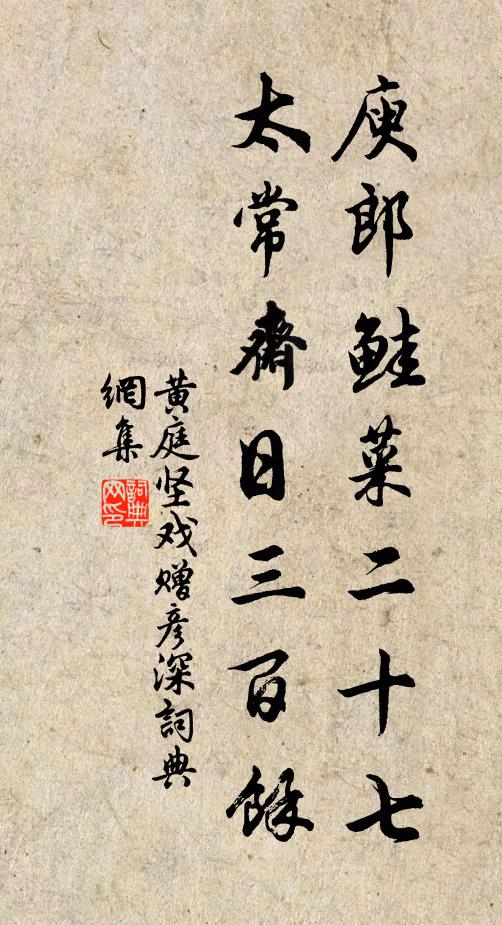 庾郎鲑菜二十七
太常齋日三百餘
黄庭坚戏赠彦深詞典
網集
詞典
网印